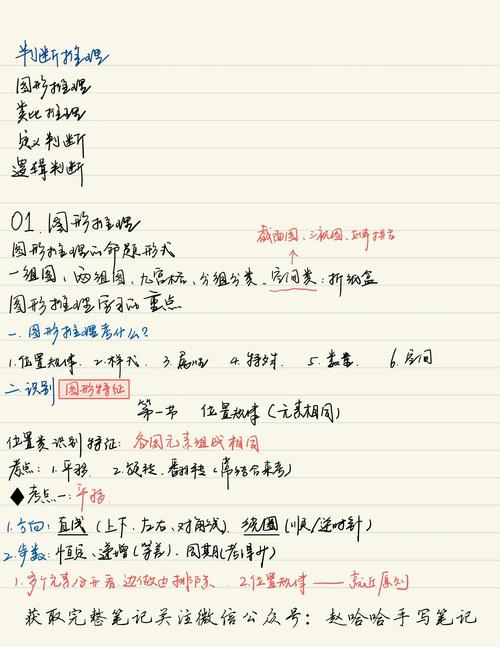 判断推理
图形推理
类比推理
定义判断
逻辑判断
01.图形推理
图形推理的命题形式
截面图、三视图、立体拼合
一组图、两组图、九宫格、分组分类、空间类:折纸盒
图形推理学习的重点
一.图形推理考什么?
1.位置规律. 2.样式. 3.属性 4.特殊. 5.数量. 6.空间
二.识别 图形特征
第一节 位置规律(元素相同)
位置类识别特征:各图元素组成相同
考点:1.平移. 2.旋转、翻转(常结合来考)
◆考点一:平移.
1.方向:直线(上下、左右、对角线)、绕圈(顺/逆时针)
2.步数:恒定、递增(等差)、周期(考得少)
1.多个元素分开看,边做边排除. 2.位置规律——就近原则
获取完整笔记关注微信公众号:赵哈哈手写笔记